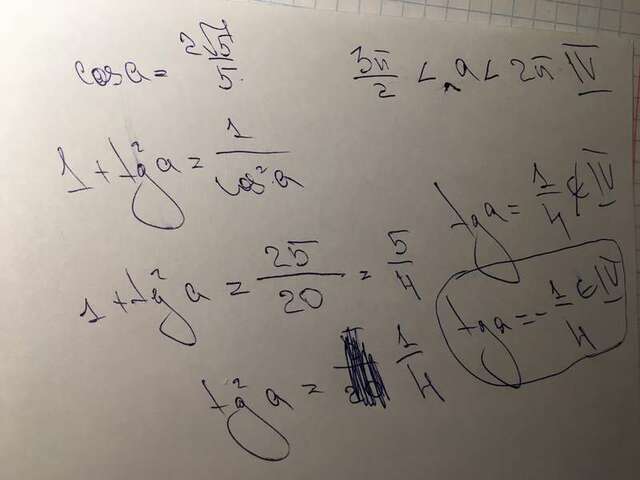 cos a = 2√5/5   3π/2 < a < 2π IV
1 + tg² a = 1/cos² a
tg a = 1/4 ∉ IV
1 + tg² a = 25/20 = 5/4
tg a = -1/4 ∈ IV
tg² a = 1/4